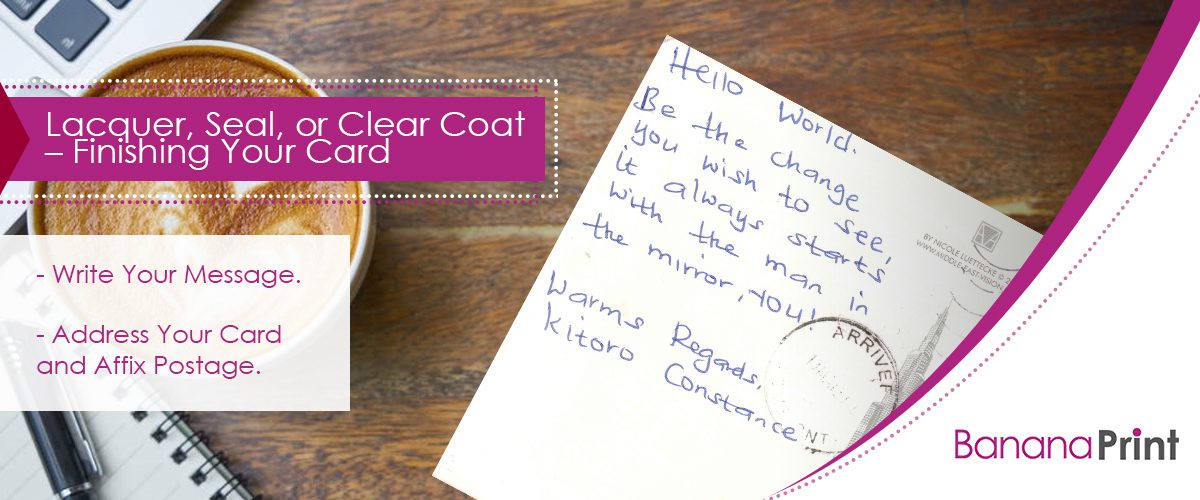 Lacquer, Seal, or Clear Coat
– Finishing Your Card
- Write Your Message.
- Address Your Card
and Affix Postage.
Hello World.
Be the change
you wish to see,
it always starts
with the man in
the mirror, YOU!
Warms Regards,
Kitoro Constance
BY NICOLE LUETTECKE ©
WWW.MIDDLE-EAST.VISION
ARRIVEE
BananaPrint